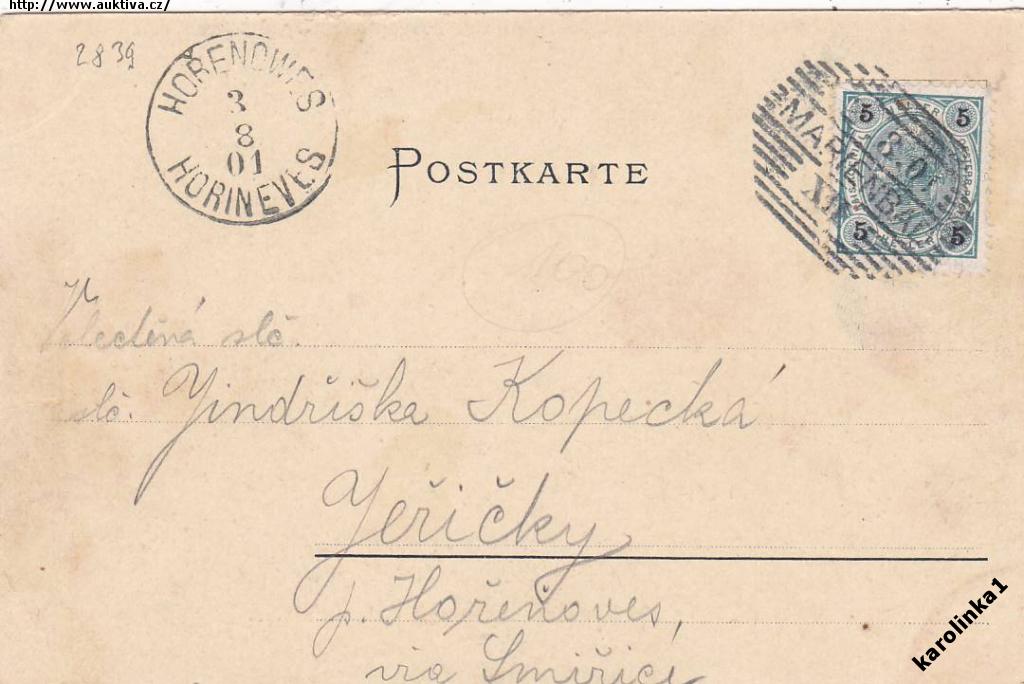 http://www.auktiva.cz/
2839
HOŘENOWES
3
8
01
HOŘINEVES
POSTKARTE
MARIENBAD
8.01
XII
5 5
5 5
HELLER
100
Vzácná slč.
slč. Jindřiška Kopecká
Jeřičky
p. Hořeňoves,
via Smiřice
karolinka1